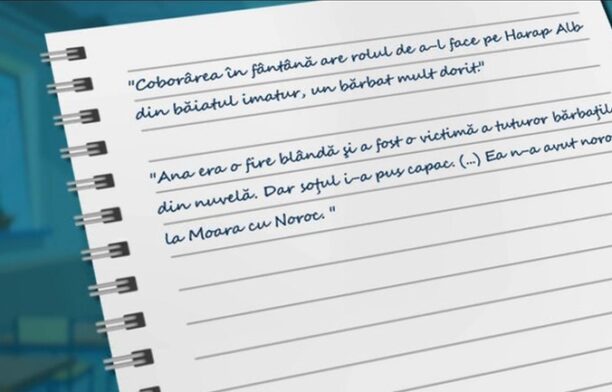 "Coborârea în fântână are rolul de a-l face pe Harap Alb
din băiatul imatur, un bărbat mult dorit."
"Ana era o fire blândă şi a fost o victimă a tuturor
din nuvelă. Dar soţul i-a pus capac. (...) Ea n-a avut
la Moara cu Noroc. "